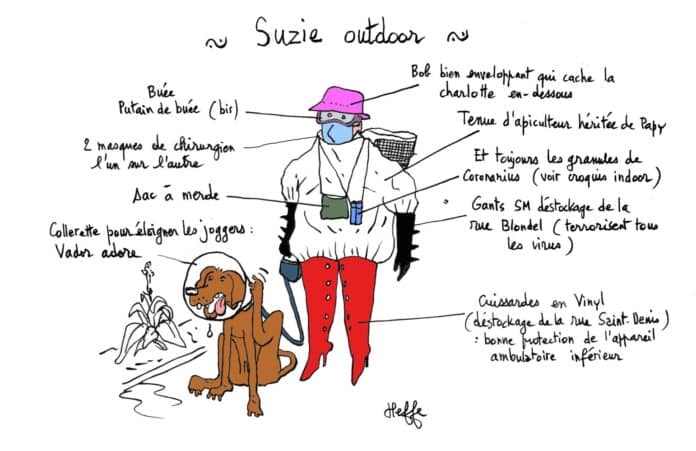 ~ Suzie outdoor ~
Buée
Putain de buée (bis)
2 masques de chirurgien
l'un sur l'autre
Sac à merde
Collerette pour éloigner les joggers :
Vador adore
Bob bien enveloppant qui cache la
charlotte en-dessous
Tenue d'apiculteur héritée de Papy
Et toujours les granules de
Coronarius (voir croquis indoor)
Gants SM déstockage de la
rue Blondel (terrorisent tous
les virus)
Cuissardes en Vinyl
(déstockage de la rue Saint-Denis)
: bonne protection de l'appareil
ambulatoire inférieur
Heffe